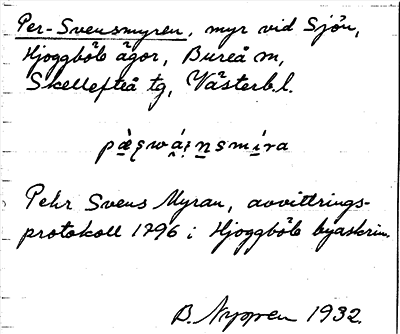 Per-Svensmyren, myr vid Sjön,
Hjoggböle ägor, Bureå sn,
Skellefteå tg, Västerb. l.
Pehr Svens Myran, avvittrings-
protokoll 1796 i Hjoggböle byaskrin.
B. Nygren 1932.